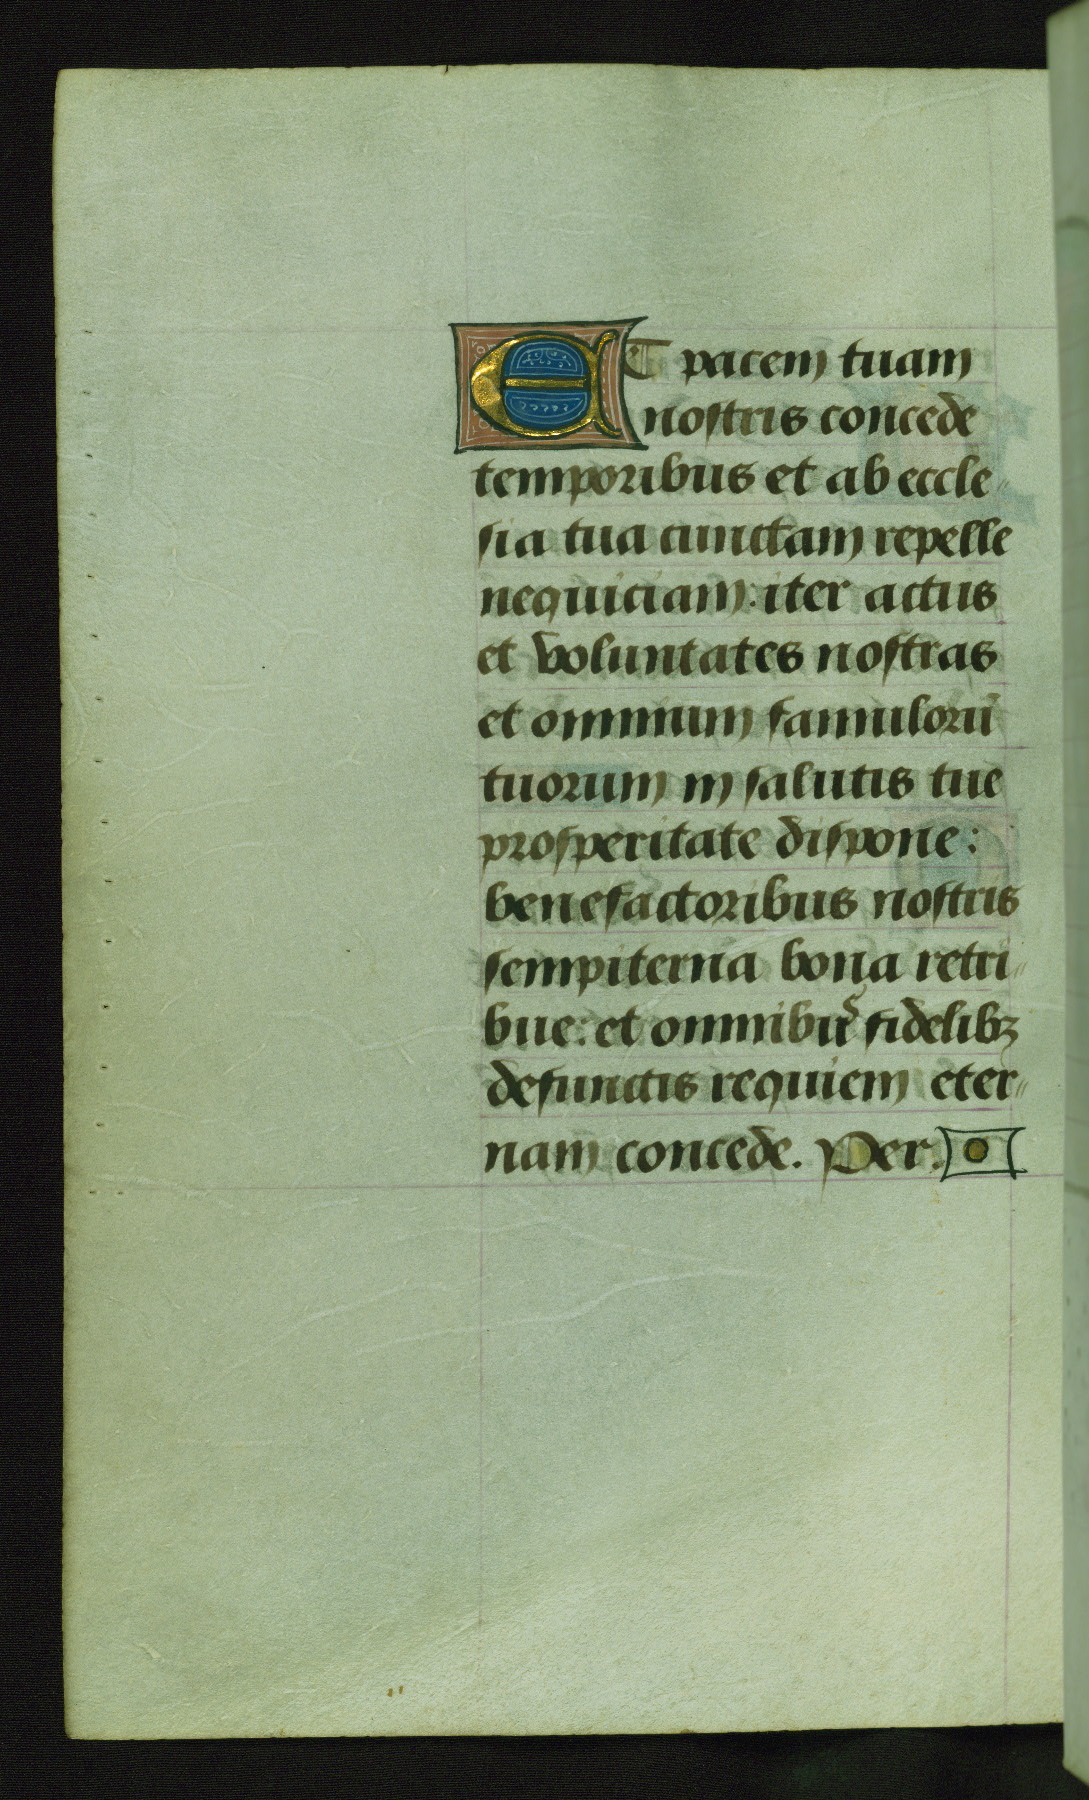 ET pacem tuam
nostris concede
temporibus et ab eccle-
sia tua cunctam repelle
nequiciam: iter actus
et voluntates nostras
et omnium famulorū
tuorum in salutis tue
prosperitate dispone:
benefactoribus nostris
sempiterna bona retri-
bue: et omnibus fidelibꝫ
defunctis requiem eter-
nam concede. Per.